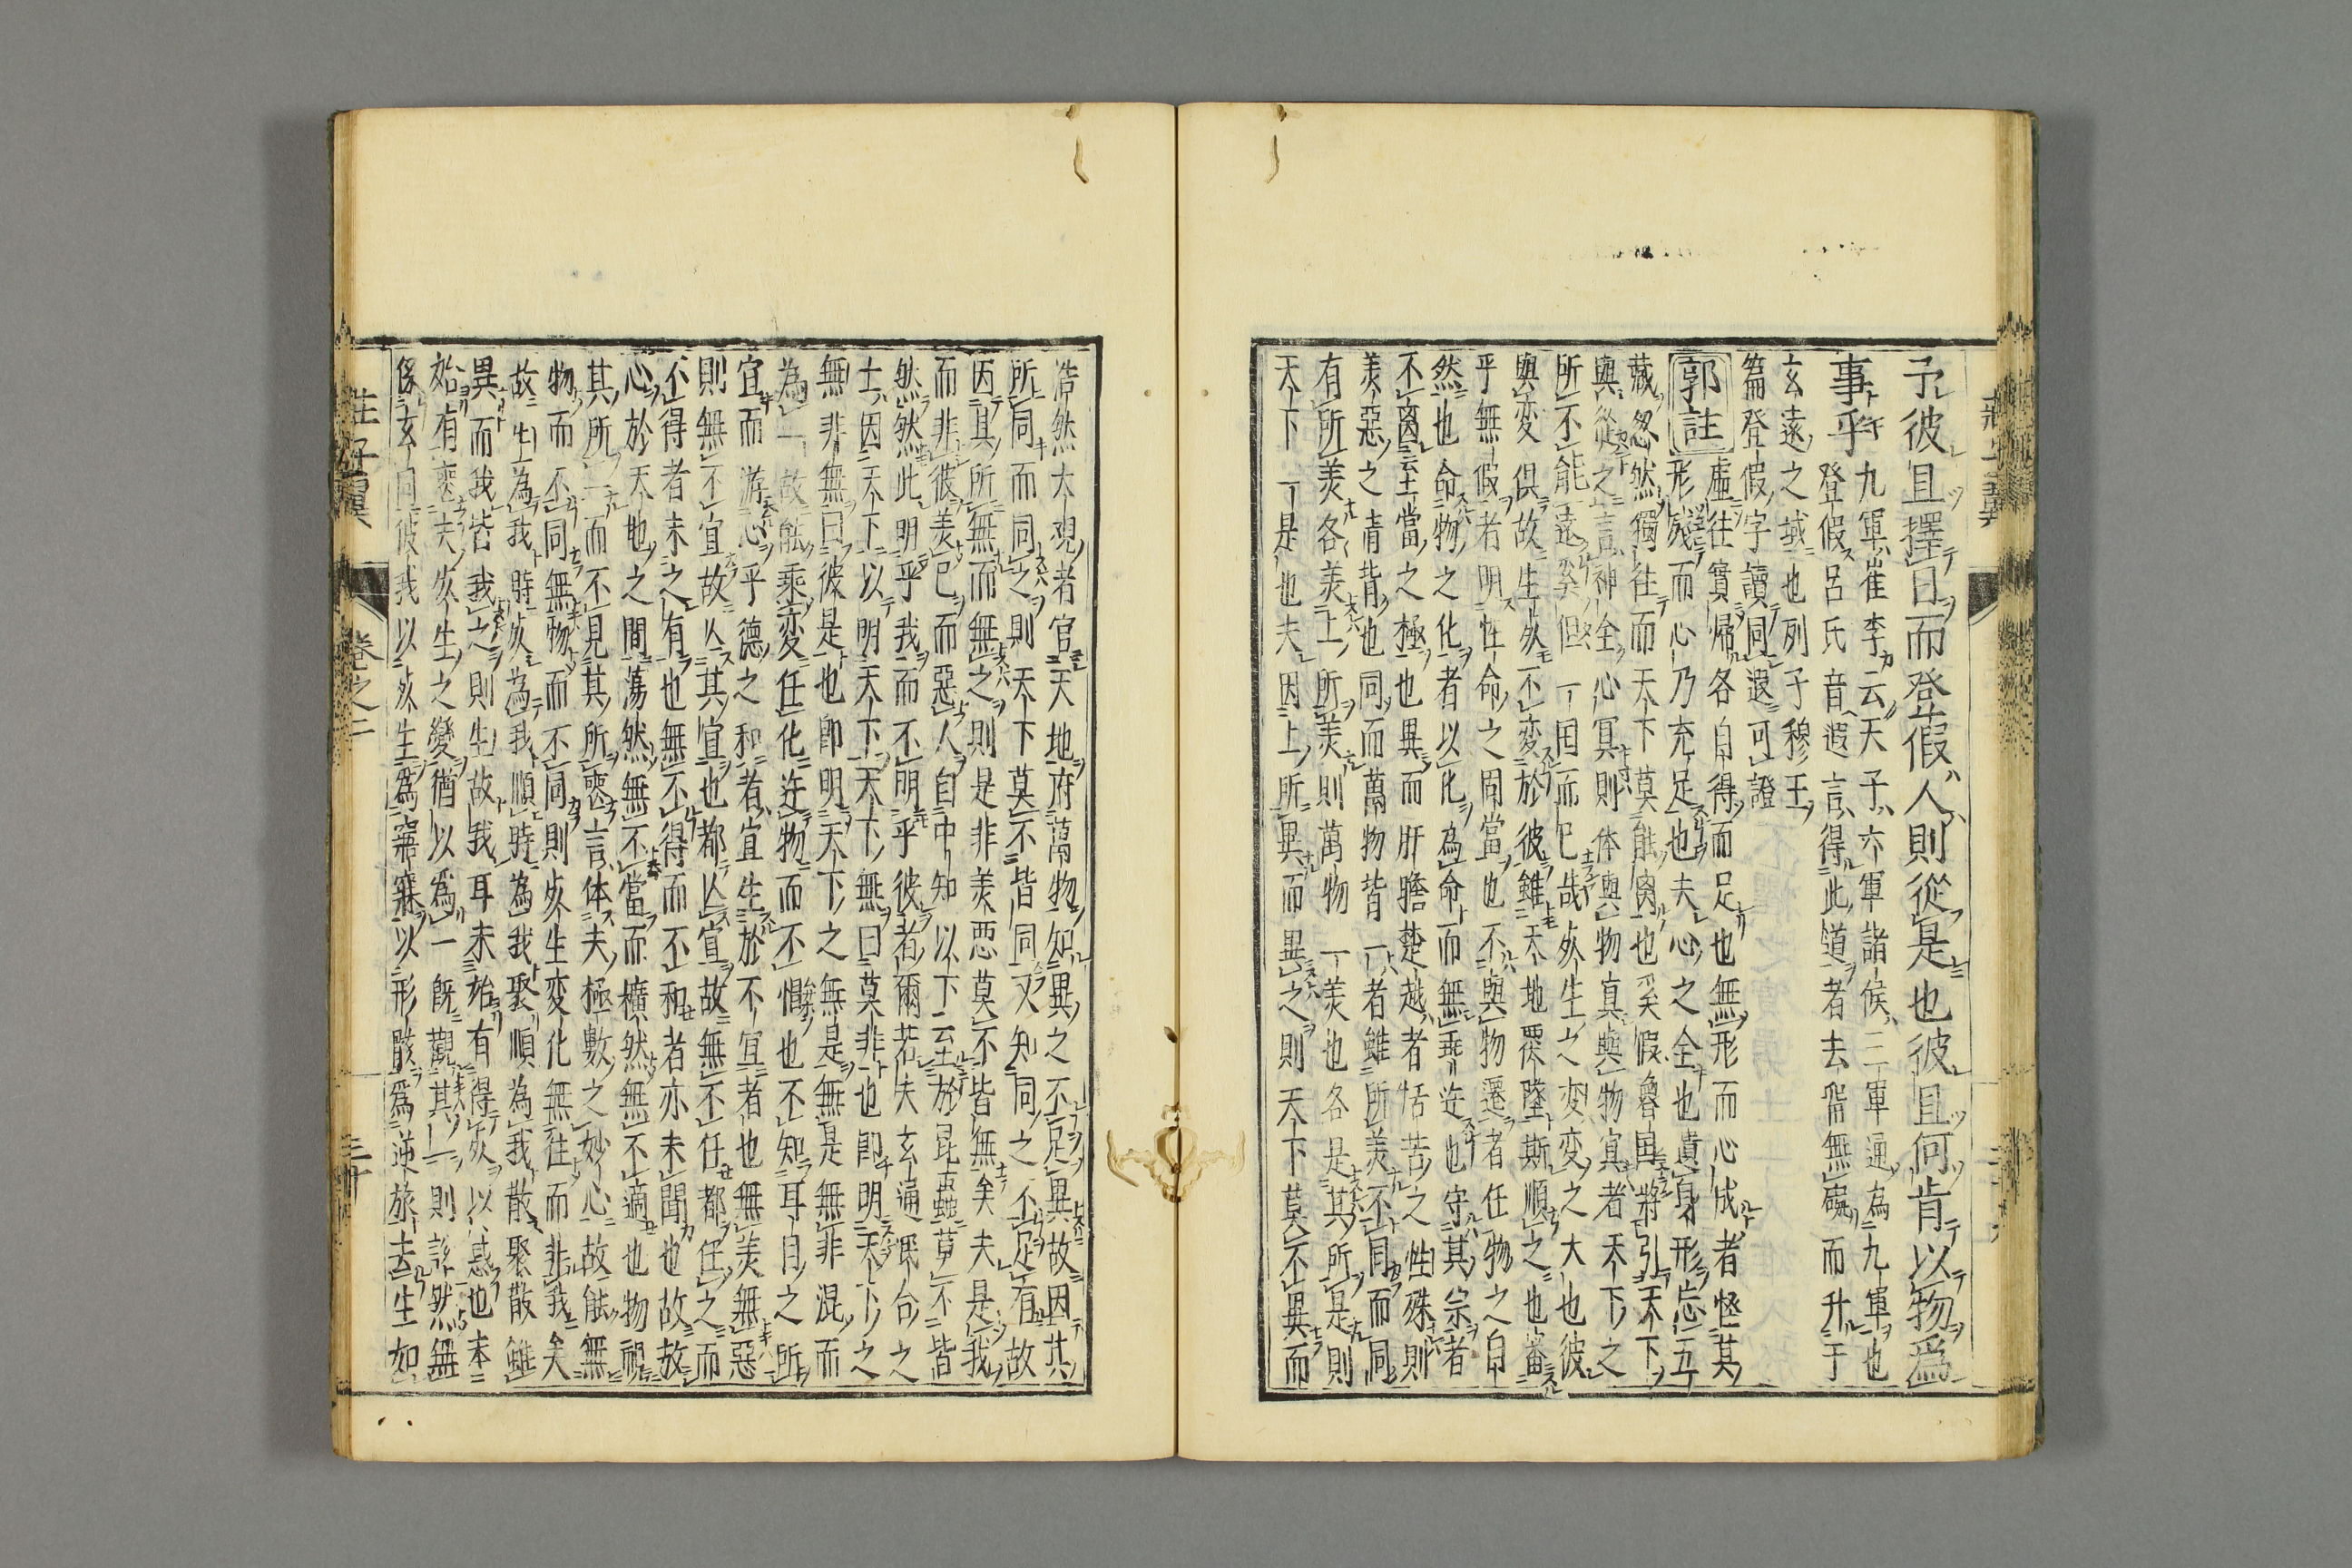 予彼且擇日而登假人則從是也彼且何肯以物爲
事乎
九軍崔李云天子六軍諸侯三軍通為九軍也
登假呂氏音遐言得此道者去留無礙而升于
玄遠之域也列子穆王
篇登假字讀同遐可證
郭註
虛往實歸各自得而足也無形而心成者怪其
形殘而心乃充足也夫心之全也遺身形忘五
藏忽然獨往而天下莫能离也奚假魯国將引天下
與從之言神全心冥則体與物冥與物冥者天下之
所不能遠奚但一国而已哉死生之変変之大也彼
與変俱故生死不変於彼雖天地覆墜斯順之也審
乎無假者明性命之固當也不與物遷者任物之自
然也命物之化者以化為命而無乖迕也守其宗者
不离至當之極也異而肝膽楚越者恬苦之性殊則
美惡之情背也同而萬物皆一者雖所美不同而同
有所美各美上所美則萬物一美也各是其所是則
天下一是也夫因上所異而異之則天下莫不異而
浩然大觀者官天地府萬物知異之不足異故因其
所同而同之則天下莫不皆同又知同之不足有故
因其所無而無之則是非美惡莫不皆無矣夫是我
而非彼美己而惡人自中知以下至於昆蟲莫不皆
然然此明乎我而不明乎彼者爾若夫玄通泯合之
士因天下以明天下天下無曰莫非也即明天下之
無非無曰彼是也即明天下之無是無是無非混而
為一故能乘変任化迕物而不慴也不知耳目之所
宜而游心乎德之和者宜生於不宜者也無美無惡
則無不宜故亾其宜也都亾宜故無不任都任之而
不得者未之有也無不得而不和者亦未聞也故放
心於天地之間蕩然無不當而擴然無不適也物視
其所一而不見其所喪言体夫極數之妙心故能無
物而不同無物而不同則死生変化無往而非我矣
故生為我時死為我順時為我聚順為我散聚散雖
異而我皆我之則生故我耳未始有得死亦我也未
始有喪夫死生之變猶以爲一既觀其一則蛻然無
係玄同彼我以死生爲寤寐以形骸爲逆旅去生如
莊子翼
卷之二
三十